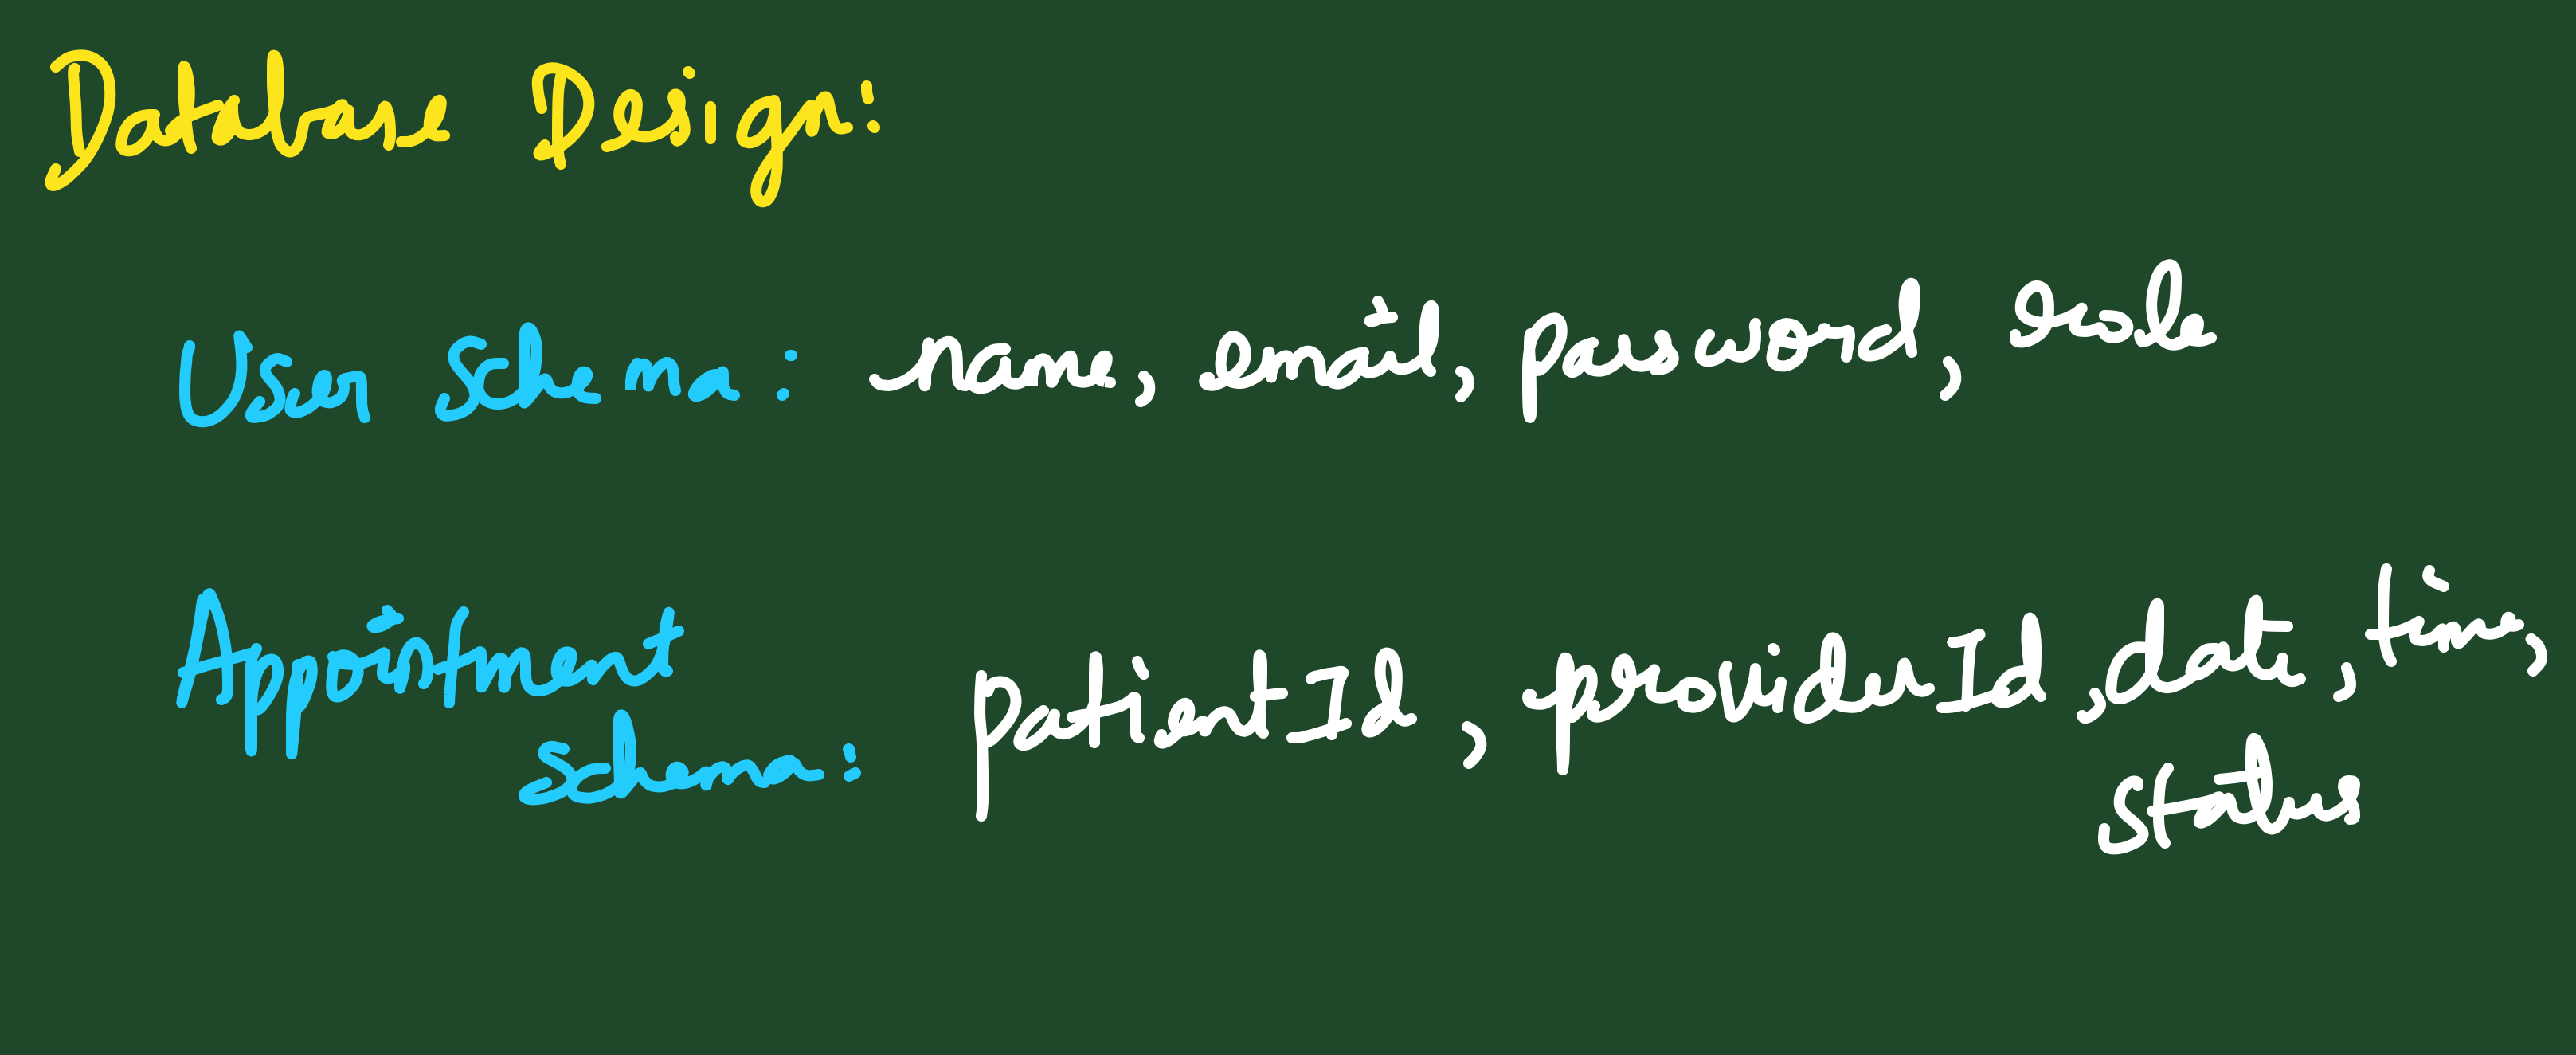 Database Design:
User Schema: name, email, password, role
Appointment
Schema: patientId, providerId, date, time,
status